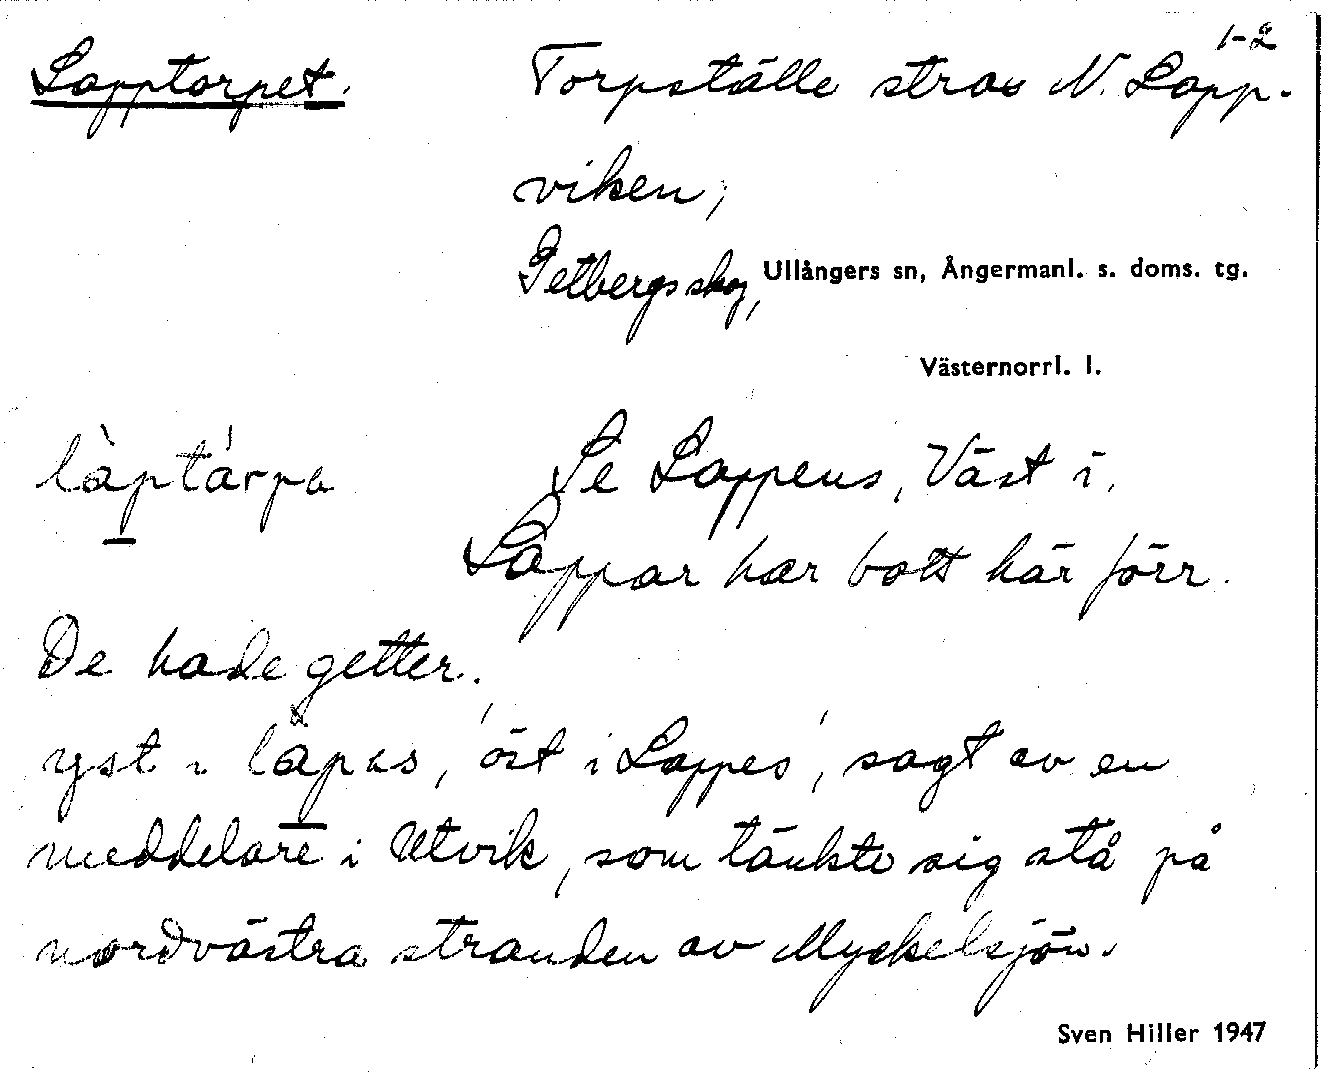 1-2
Lapptorpet. Torpställe strax N. Lapp-
viken;
Getbergsskog, Ullångers sn, Ångermanl. s. doms. tg.
Västernorrl. l.
làptárpa Se Lappens, Väst i.
Lappar har bott här förr.
De hade getter.
yst i làpas, 'öst i Lappes', sagt av en
meddelare i Utvik, som tänkte sig stå på
nordvästra stranden av Myckelsjön.
Sven Hiller 1947